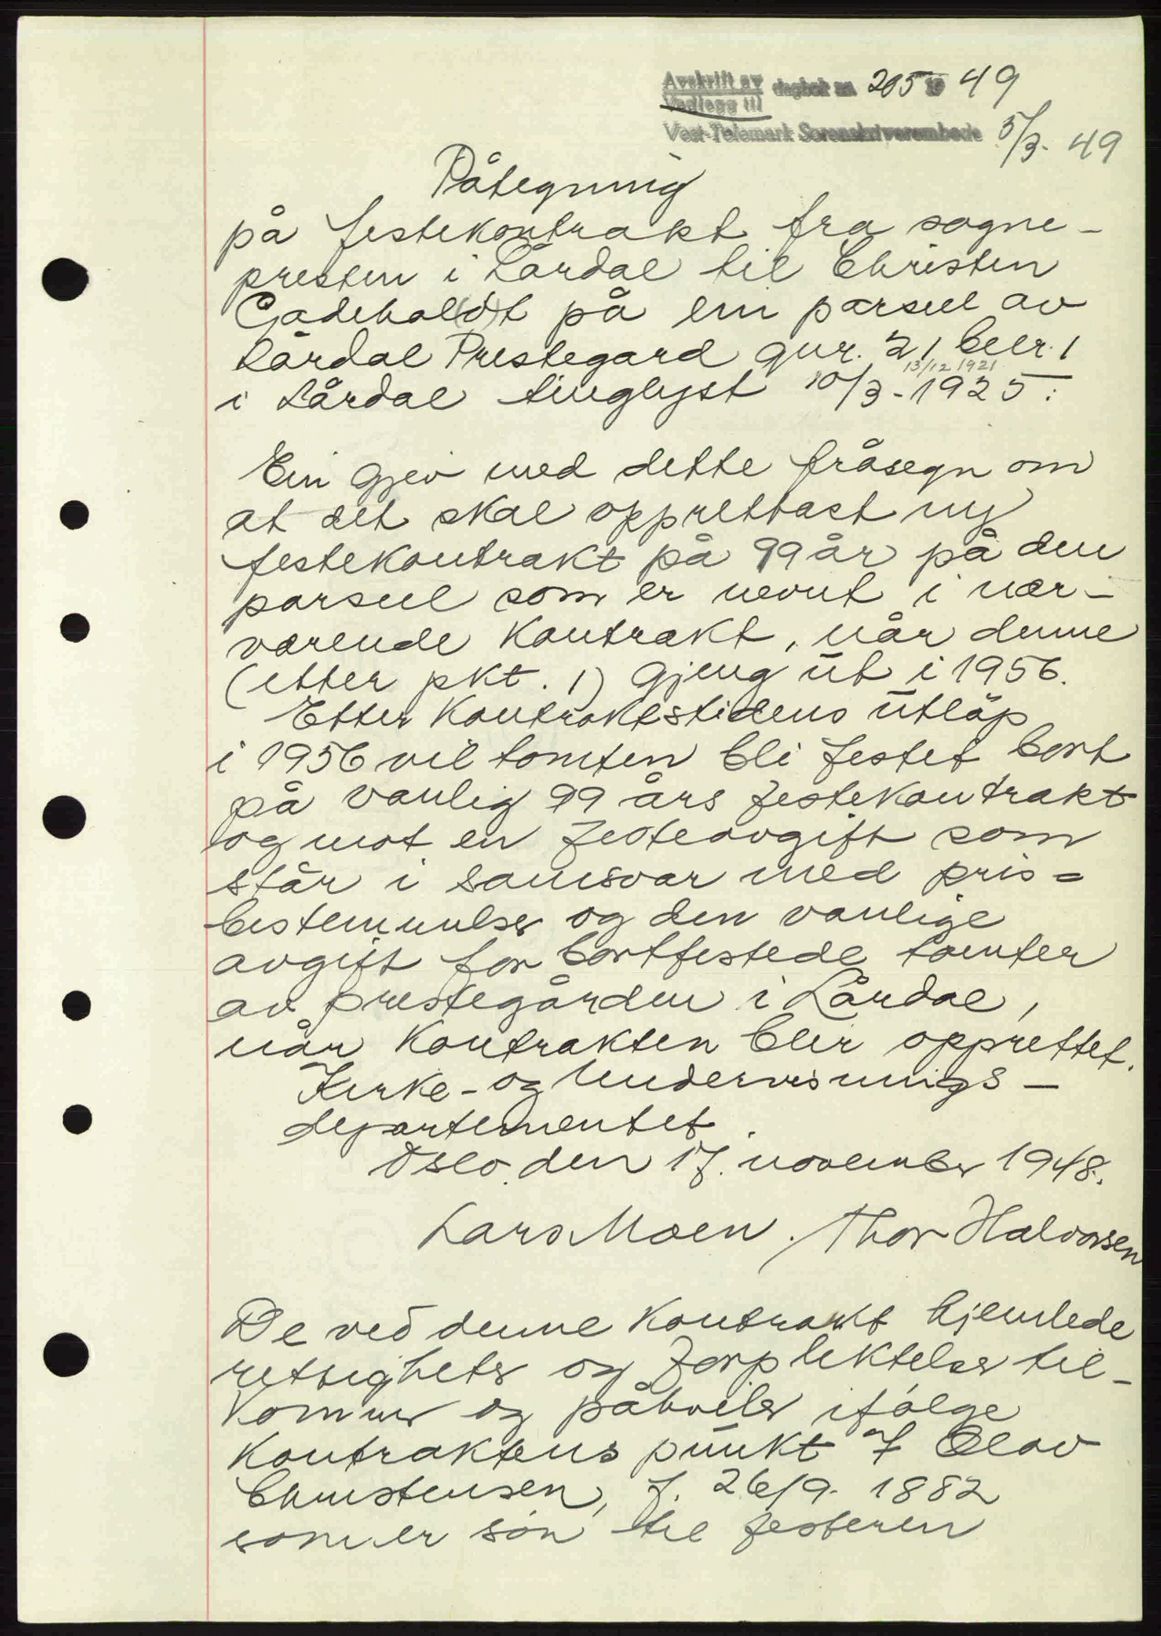 Avskrift av
Vedlegg til
dagbok nr. 205 19 49
Vest-Telemark Sorenskriverembede 5/3. 49
Påtegning
på festekontrakt fra sogne-
presten i Lårdal til Christen
Gadehol(d)t på ein parsell av
Lårdal Prestegard gnr. 21 bnr. 1
13/12 1921
i Lårdal tinglyst 10/3-1925:
Ein gjev med dette fråsegn om
at det skal opprettast ny
festekontrakt på 99 år på den
parsell som er nevnt i nær-
værende kontrakt, når denne
(etter pkt. 1) gjeng ut i 1956.
Etter kontraktstidens utløp
i 1956 vil tomten bli festet bort
på vanlig 99 års festekontrakt
og mot en festeavgift som
står i samsvar med pris=
bestemmelser og den vanlige
avgift for bortfestede tomter
av prestegården i Lårdal,
når kontrakten blir opprettet.
Kirke- og Undervisnings-
departementet.
Oslo, den 17. november 1948.
Lars Moen. Thor Halvorsen
De ved denne kontrakt hjemlede
rettigheter og forpliktelser til-
kommer og påhviler ifølge
kontraktens punkt 7 Olav
Christensen, f. 26/9. 1882
som er søn til festeren